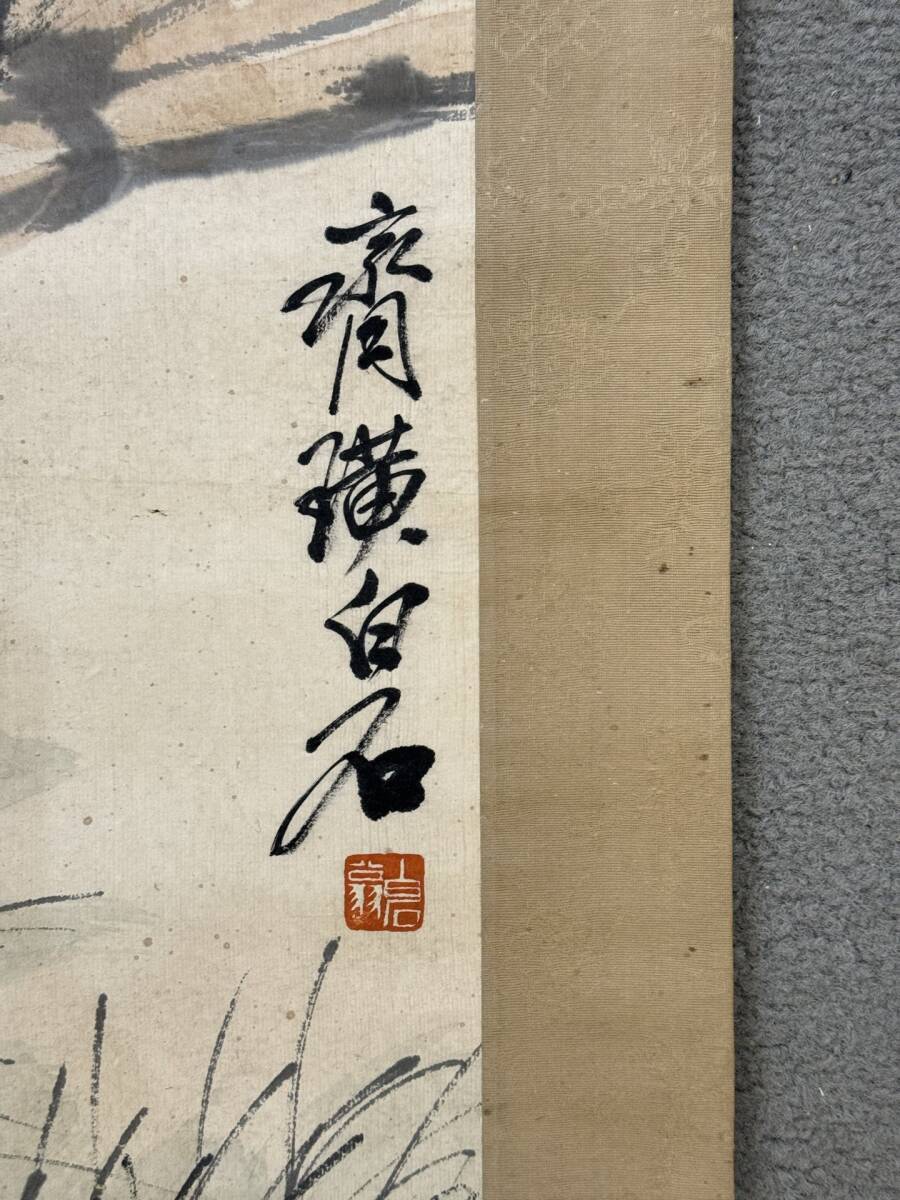 齊璜白石
白石翁